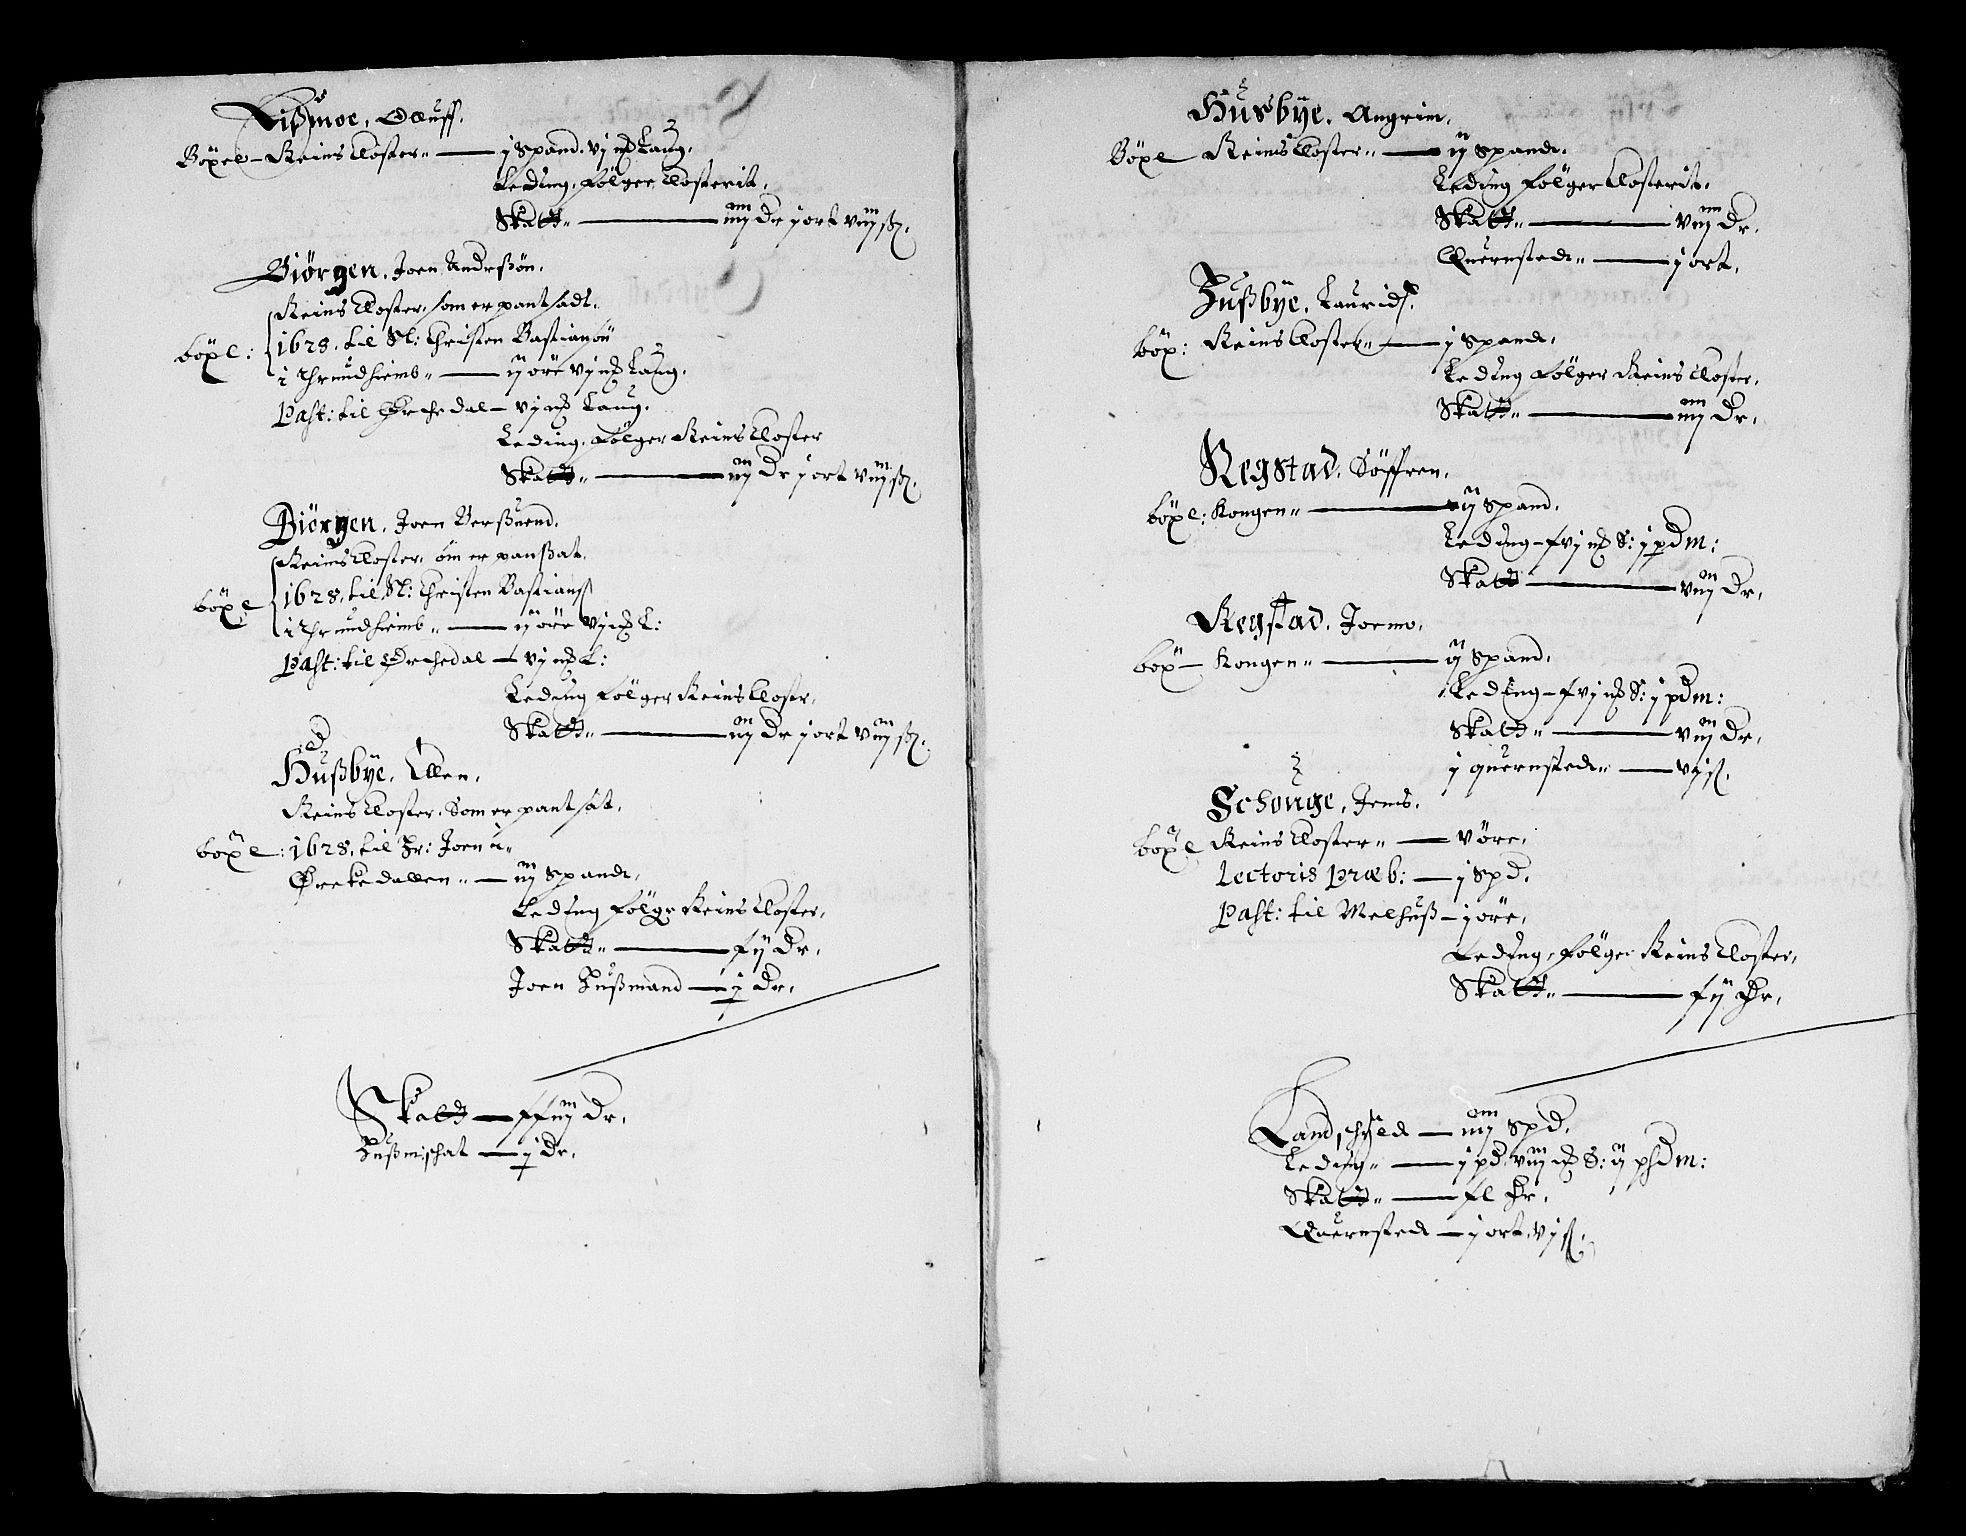 Lißmoe, Oluff.
Böxel – Reins Closter – j spand. vj mk Laug.
Leding, følger Closterit,
Skatt – iiij Dr j ort viij sk.
Biörgen, Joen Andrßön.
Reins Closter, som er pantsadt
böxl: 1628, til Sl: Christen Bastiansön
i Thrundhiemb – ij öre vj mk Laug.
Past: til Orchedal – vj mk Laug.
Leding, følger Reins Closter
Skatt – iij Dr j ort viij sk.
Biörgen, Joen Berßuend.
Reins Closter, som er panßat
böxl 1628, til Sl: Christen Bastianß
i Thrundhiemb – ij öre vj mk L:
Past: til Orchedal – vj mk L:
Leding følger Reins Closter,
Skatt – iij Dr j ort viij sk.
Hußbye, Ellen,
Reins Closter, Som er pantsat,
böxl: 1628, til Hr: Joen i
Örkedallen – iij Spand,
Leding følger Reins Closter,
Skatt – xij Dr,
Joen Hußmand – j Dr,
Skatt – xxiij Dr,
Hußmschat – j Dr,
Husbye, Angrim,
Böxl Reins Closter – ij Spand,
Leding følger Closterit,
Skatt – viij Dr,
Quernsted – j ort,
Hußbye, Lauridß.
böx: Reins Closter – j Spand,
Leding følger Reins Closter,
Skatt – iiij Dr,
Regstad, Söffren,
böxl: Kongen – ij Spand,
Leding – xvj mk S: j pd m:
Skatt – viij Dr,
Regstad, Joemo,
böx – Kongen – ij Spand,
Leding – xvj mk S: j pd m:
Skatt – viij Dr,
j quernsted – vj sk,
Schouge, Jens,
böxl Reins Closter – v öre,
Lectoris Præb: – j Spd,
Past: til Melhuß – j öre,
Leding, følger Reins Closter,
Skatt – xij Dr,
Landschyld – Spd,
Leding – j pd. viij mk S: ij pd m:
Skatt – xl Dr,
Quernsted – j ort, vj sk,